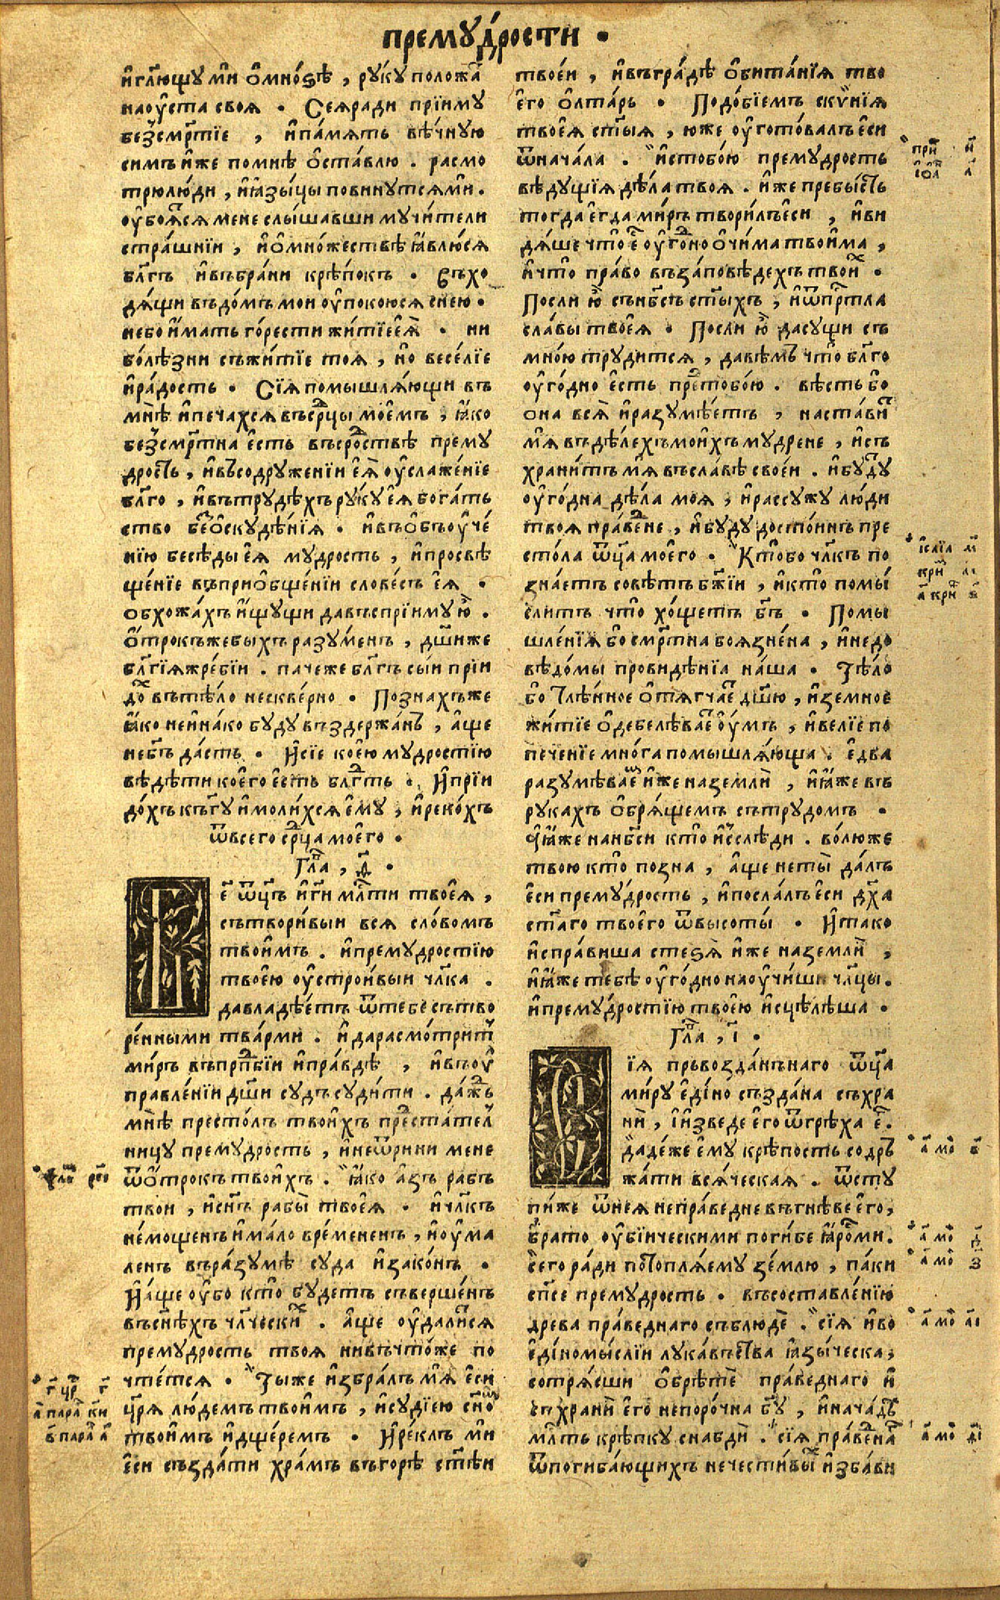 премꙋ́дрости •
и҆гл҃ющꙋ мѝ о҆мно́ѕѣ , рꙋ́кꙋ положа́т
наоу҆ста своѧ • Сеѧ̀ради прїимꙋ
без̾сме́ртїе , и҆па́мѧть вѣ́чнꙋю
симъ и҆же помнѣ ѡ҆ста́влю . расмо
трюлю́ди , и҆ꙗ҆зы́цы повинꙋтсѧми .
оу҆боѧ̀тсѧ мене слы́шавши мꙋчи́тели
стра́шнїи , и҆о҆мно́жествѣ ꙗ҆влю́сѧ
бл҃гъ и҆въбра́ни крѣ́покъ . Въхо
дѧ́щи въдо́мъ мои оу҆поко́юсѧ снею .
небо и҆́мать го́рести житїе еѧ̀ . ни
болѣзни съжи́тїе тоѧ , но весе́лїе
и҆ра́дость . Сїѧ̀ помышлѧ́ющи въ
мнѣ и҆печа́хсѧ въсрⷣцы мое́мъ , ꙗ҆́ко
без̾сме́ртна е҆сть въсро́дствѣ премꙋ
дрость , и҆въсодрꙋже́нїи еѧ̀ оу҆слажде́нїе
бл҃го , и҆въ трꙋдѣ́хъ рꙋкꙋ еѧ̀ бога́ть
ство безоскꙋдѣ́нїѧ . и҆въо҆бъоу҆че́
нїю бесѣ́ды еѧ̀ мꙋ́дрость , и҆просвѣ
ще́нїе въприо҆бще́нїи слове́съ еѧ̀ .
о҆бхожда́хъ и҆щꙋщи давъспрїимꙋ ю̀ .
о҆трокъжебы́хъ разꙋ́менъ , дш҃иже
бл҃гїѧжре́бїи . па́чеже бл҃гъ сы́и прїи
до́хъ вътѣ́ло нескве́рно . Позна́хъже
ꙗ҆́ко неи҆на́ко бꙋдꙋ въздержа́нъ , а҆ще
небг҃ъ да́стъ . И҆сїе кое́ю мꙋдростїю
вѣ́дѣти коего̀ е҆сть бл҃гть . И҆прїи
до́хъ къгꙋ и҆моли́хсѧ е҆мꙋ , и҆реко́хъ
ѿвсего ср҃ца моего .
Гла҃ , ѳ҃ .
Бе҃ ѿц҃ъ и҆ги мл҃сти твоеѧ̀ ,
сътвори́выи всѧ̀ сло́вомъ
твои́мъ . и҆премꙋ́дростїю
твое́ю оу҆стро́ивыи чл҃ка .
давладѣ́етъ ѿтебе сътво
ре́нными тва́рми . и҆ дарасмо́тритъ
ми́ръ въпрпⷣбїи и҆пра́вдѣ , и҆въоу҆
правле́нїи дш҃и сꙋдъ сꙋ́дити . да́ждь
мнѣ престо́лъ твои́хъ предста́тел
ницꙋ премꙋдрость , и҆неѿри́ни мене
ѿо҆трокъ твои́хъ . ꙗ҆́ко а҆́зъ рабъ
твои , и҆сн҃ъ рабы̀ твоеѧ̀ . и҆чл҃къ
не́мощенъ и҆ма́ло вре́мененъ , и҆оу҆ма
ленъ въра́зꙋмѣ сꙋда̀ и҆зако́нъ .
И҆а҆́ще оу҆́бо кто̀ бꙋ́детъ съверше́нъ
въсн҃ѣхъ чл҃ческихъ . а҆́ще оу҆дали́тсѧ
премꙋ́дрость твоѧ̀ нивъчто́же по
чте́тсѧ . Ты́же и҆збра́лъ мѧ̀ е҆сѝ
цр҃ѧ лю́демъ твои́мъ , и҆сꙋдїею сн҃ѡм
твои́мъ и҆дще́ремъ . И҆ре́клъ ми
е҆сѝ създа́ти хра́мъ въгорѣ̀ ст҃ѣи
твое́и , и҆въгра́дѣ о҆бита́нїѧ тво
его̀ о҆лта́рь . Подо́бїемъ скѵ́нїѧ
твоеѧ̀ ст҃ыѧ , ю҆же оу҆гото́валъ е҆сѝ
ѿнача́ла . и҆стобо́ю премꙋдрость
вѣ́дꙋщїѧ дѣ́ла твоѧ̀ . и҆же пребы́сть
тогда̀ е҆гда̀ ми́ръ твори́лъ е҆сѝ , и҆ви
дѧ́ше что̀ е҆ оу҆го́дно о҆чи́ма твои́ма ,
и҆что̀ пра́во въза́повѣдехъ твои́х .
Послѝ ю̀ сънб҃съ ст҃ыхъ , и҆ѿпрⷭ҇тла
сла́вы твоеѧ̀ . Послѝ ю̀ дасꙋщи съ
мно́ю трꙋ́дитсѧ , давѣ́мъ что̀ бл҃го
оу҆го́дно е҆сть предтобо́ю . вѣ́сть бо
о҆на̀ всѧ̀ и҆разꙋмѣ́етъ , наста́витъ
мѧ̀ въдѣ́лехъ мои́хъ мꙋ́дрене , и҆съ
храни́тъ мѧ̀ въсла́вѣ свое́и . и҆бꙋ́дꙋ
оу҆го́дна дѣ́ла моѧ̀ , и҆рассꙋжꙋ лю́ди
твоѧ̀ пра́ведне , и҆бꙋ́дꙋ досто́инъ пре
сто́ла ѿц҃а моего . Кто́бо чл҃къ по
зна́етъ совѣ́тъ бж҃їи , и҆кто̀ помы́
слитъ что̀ хо́щетъ бг҃ъ . Помы
шле́нїѧ бо сме́ртна боѧзне́на , и҆недо
вѣ́домы провидѣ́нїѧ на́ша . Тѣ́ло
бо тлѣ́нное о҆тѧгча́ет дш҃ю , и҆земно́е
житїе о҆дебелѣ́вает оу҆́мъ , и҆ве́лїе по
пече́нїе мно́га помышлѧ́юща . е҆два
разꙋмѣ́ваем и҆́же наземлѝ , и҆ꙗ҆́же въ
рꙋка́хъ о҆брѧ́щемъ сътрꙋдо́мъ .
ꙗ҆́же нанб҃си кто̀ и҆сслѣ́ди . во́люже
твою̀ кто̀ позна̀ , а҆́ще неты̀ да́лъ
е҆сѝ премꙋ́дрость , и҆посла́лъ е҆сѝ дх҃а
ст҃а́го твоего̀ ѿвысоты̀ . И҆та́ко
и҆спра́виша стеѕѧ̀ и҆́же наземлѝ ,
и҆ꙗ҆́же тебѣ̀ оу҆го́дно наоу҆чи́ши чл҃цы .
и҆премꙋ́дростїю твое́ю и҆сцѣлѣ́ша .
Гла҃ , і҃ .
Сїѧ̀ прьвозда́ннаго ѿц҃а
ми́рꙋ е҆ди́но създа́на съхра
нѝ , и҆изведѐ е҆го̀ ѿгрѣха̀ е҆г .
даде́же е҆мꙋ̀ крѣ́пость содръ
жа́ти всѧ́ческаѧ . ѿстꙋ
пи́же ѿнеѧ̀ непра́ведне въгнѣ́ве е҆го ,
бра́то оу҆бїи́ческими поги́бе ꙗ҆́ростми .
сего̀ ра́ди потоплѧ́емꙋ зе́млю , па́ки
сп҃се премꙋ́дрость . въсоставле́нїю
дре́ва пра́веднаго съблюдѐ . сїѧ̀ и҆во
е҆диномы́слїи лꙋка́вьства ꙗ҆зы́ческа ,
сотрѧ́сши о҆брѣ́те пра́веднаго и҆
съхранѝ е҆го̀ непоро́чна бг҃ꙋ , и҆нача́дъ
мл҃ть крѣ́пкꙋ снабдѝ . сїѧ̀ пра́веднаг
ѿпогиба́ющихъ нечести́выхъ и҆зба́ви